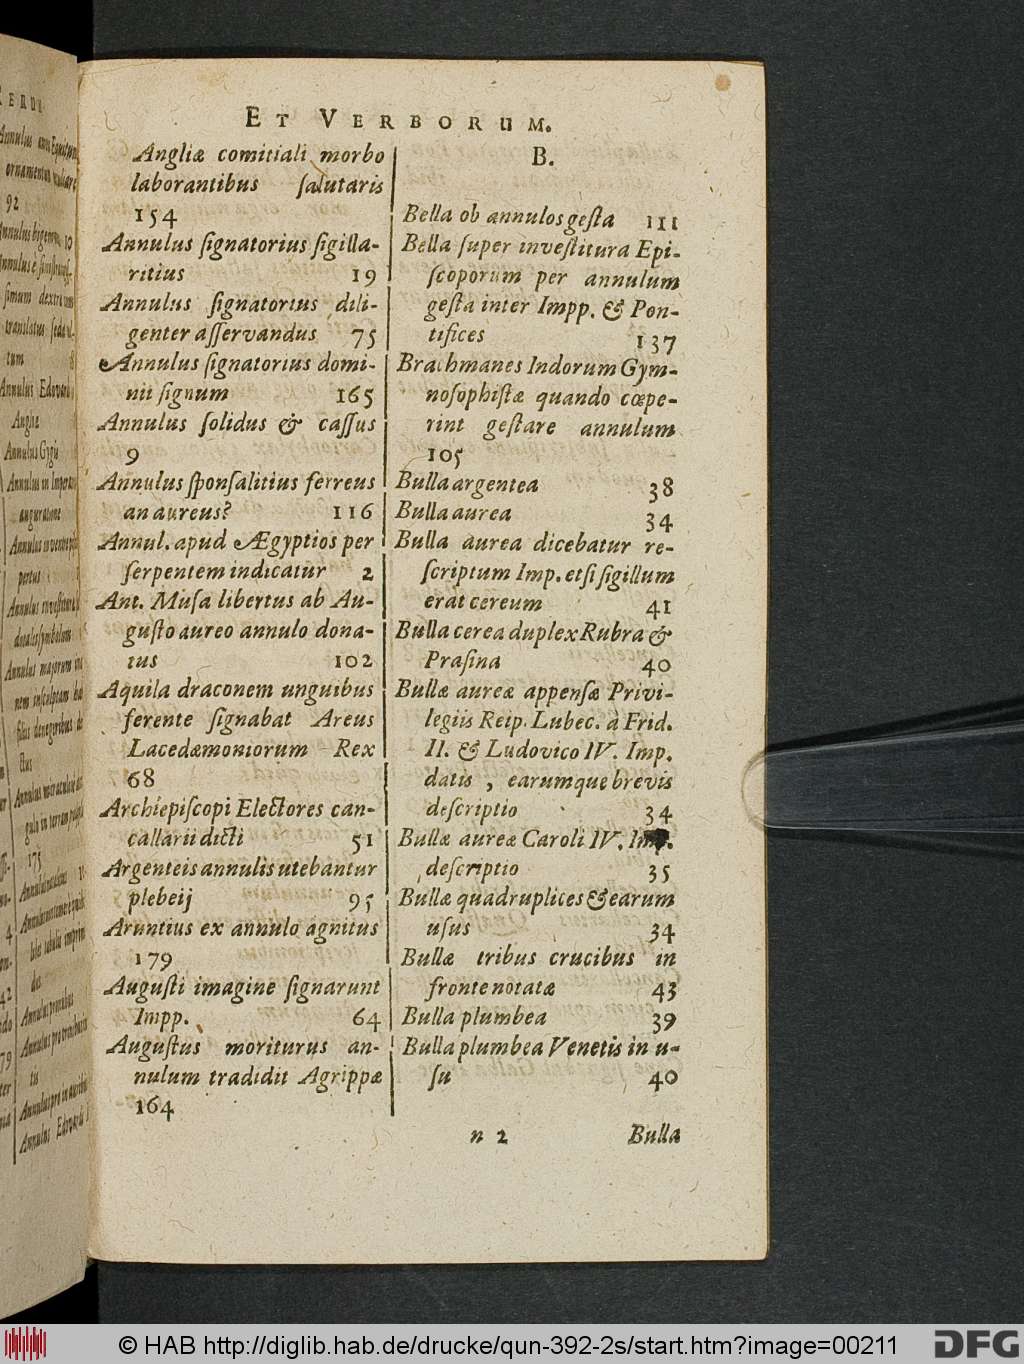 ET VERBORUM.
Angliæ comitiali morbo
laborantibus ſalutaris
154
Annulus ſignatorius ſigilla-
ritius 19
Annulus ſignatorius dili-
genter aſſervandus 75
Annulus ſignatorius domi-
nii ſignum 165
Annulus ſolidus & caſſus
9
Annulus ſponſalitius ferreus
an aureus? 116
Annul. apud Ægyptios per
ſerpentem indicatur 2
Ant. Muſa libertus ab Au-
guſto aureo annulo dona-
tus 102
Aquila draconem unguibus
ferente ſignabat Areus
Lacedæmoniorum Rex
68
Archiepiſcopi Electores can-
callarii dicti 51
Argenteis annulis utebantur
plebeij 95
Aruntius ex annulo agnitus
179
Auguſti imagine ſignarunt
Impp. 64
Auguſtus moriturus an-
nulum tradidit Agrippæ
164
B.
Bella ob annulos geſta 111
Bella ſuper inveſtitura Epi-
ſcoporum per annulum
geſta inter Impp. & Pon-
tifices 137
Brachmanes Indorum Gym-
noſophiſtæ quando cœpe-
rint geſtare annulum
105
Bulla argentea 38
Bulla aurea 34
Bulla aurea dicebatur re-
ſcriptum Imp. etſi ſigillum
erat cereum 41
Bulla cerea duplex Rubra &
Praſina 40
Bullæ aureæ appenſæ Privi-
legiis Reip. Lubec. à Frid.
II. & Ludovico IV. Imp.
datis, earumque brevis
deſcriptio 34
Bullæ aureæ Caroli IV. Imp.
deſcriptio 35
Bullæ quadruplices & earum
uſus 34
Bullæ tribus crucibus in
fronte notatæ 43
Bulla plumbea 39
Bulla plumbea Venetis in u-
ſu 40
n 2 Bulla
© HAB http://diglib.hab.de/drucke/qun-392-2s/start.htm?image=00211
DFG